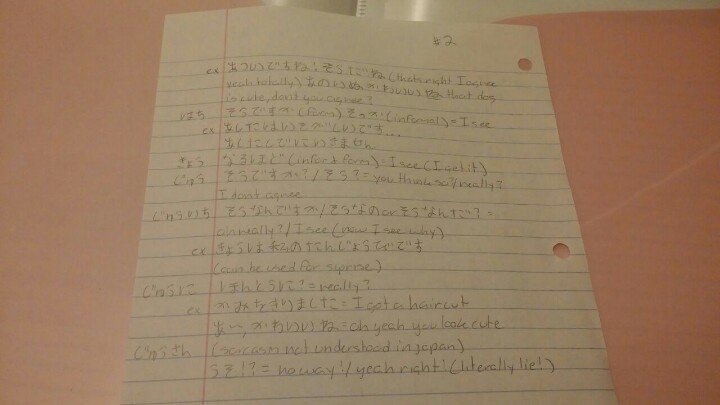 #2
ex あついですね! そうだね (thats right I agree
yeah totally) あのいぬかわいいね that dog
is cute, dont you agree?
はち そうですか (form) そっか (informal) = I see
ex あしたはいそがしいです...
あしたしていきません
きゅう なるほど (inf and form) = I see (I get it)
じゅう そうですか? / そう? = you think so?/really?
I dont agree
じゅういち そうなんですか / そうなの or そうなんだ? =
oh really? / I see (now I see why)
ex きょうは私のたんじょうびです
(can be used for suprise)
じゅうに ほんとうに? = really?
ex かみをきりました = I got a haircut
あー, かわいいね = oh yeah you look cute
じゅうさん (sarcasm not understood in japan)
うそ!? = no way! / yeah right! (literally lie!)